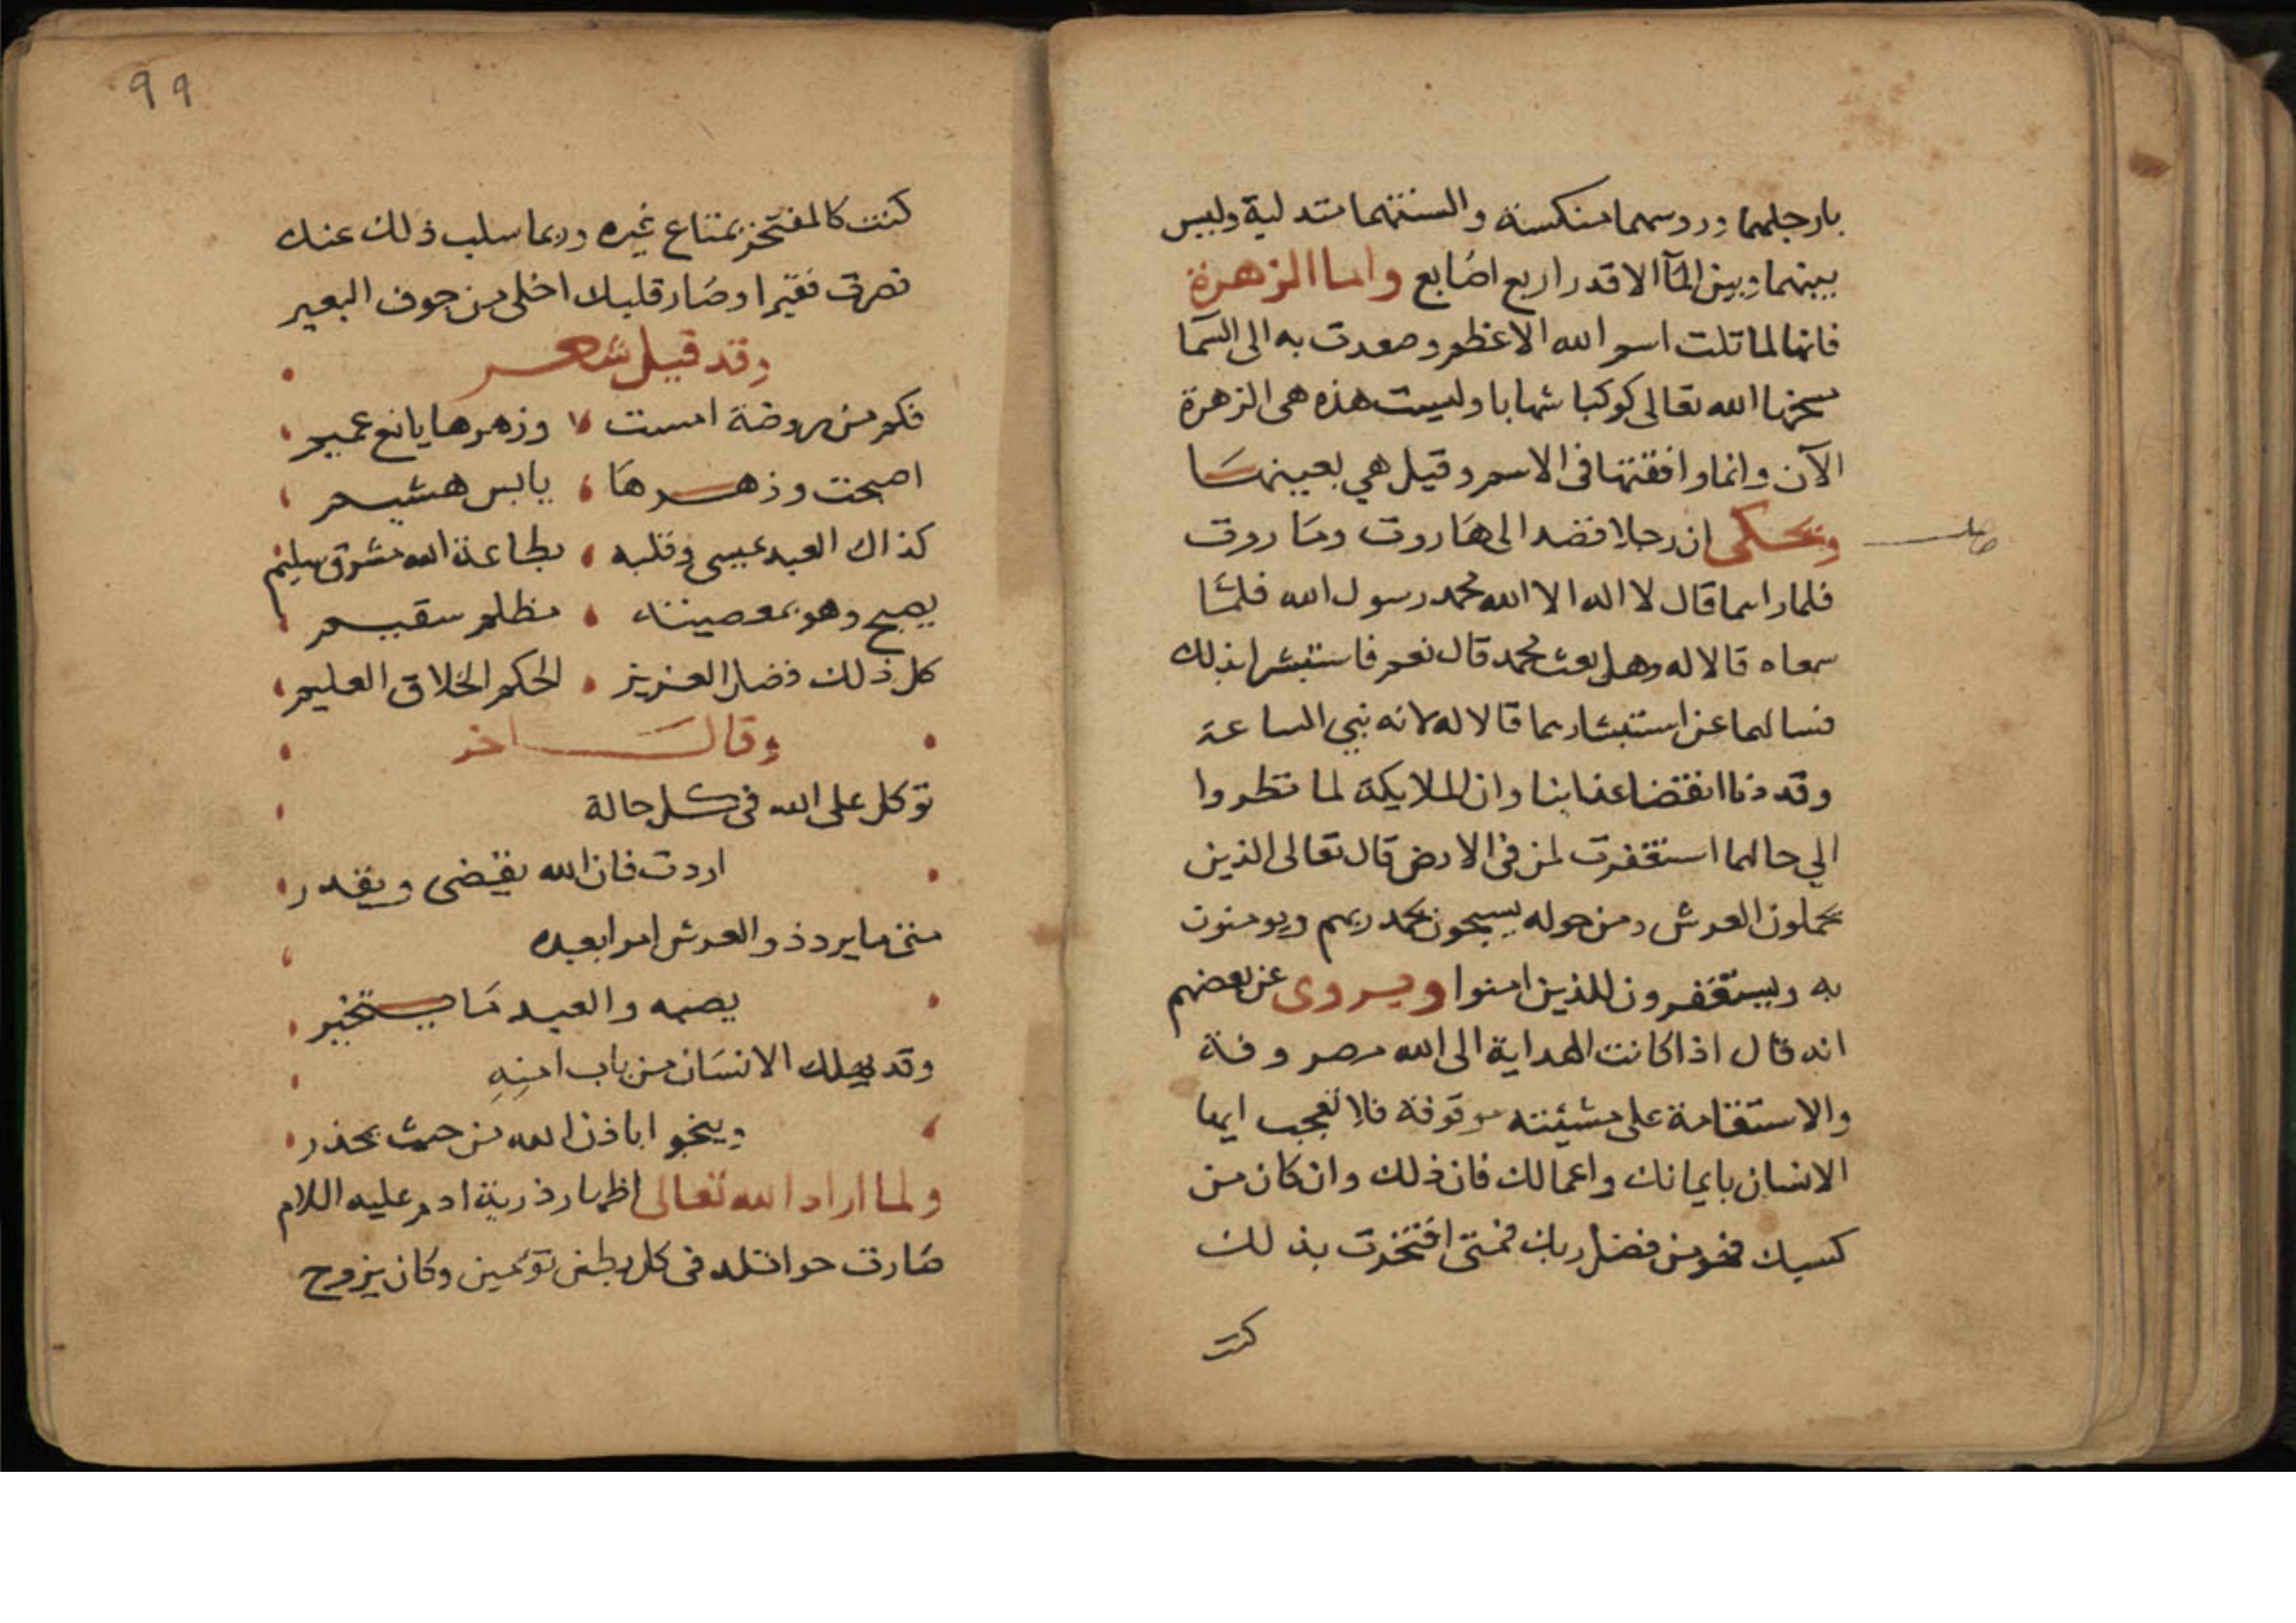 بارجلهما وروسهما منكسة والسنتهما متدلية وليس
بينهما وبين المآ الا قدر اربع اصابع واما الزهرة
فانها لما تلت اسم الله الاعظم وصعدت به الى السما
مسخها الله تعالى كوكبا شهابا وليست هذه هى الزهرة
الآن وانما وافقتها فى الاسم وقيل هي بعينها
ويحكى ان رجلا قصد الى هاروت وماروت
فلما راهما قال لا اله الا الله محمد رسول الله فلما
سمعاه قالا له وهل بعث محمد قال نعم فاستبشرا بذلك
فسالهما عن استبشارهما قالا له لانه نبي الساعة
وقد دنا انقضا عذابنا وان الملايكة لما نظروا
الي حالهما استغفرت لمن فى الارض قال تعالى الذين
يحملون العرش ومن حوله يسبحون بحمد ربهم ويومنون
به ويستغفرون للذين امنوا ويروى عن بعضهم
انه قال اذا كانت الهداية الى الله مصروفة
والاستقامة على مشيئته موقوفة فلا تعجب ايها
الانسان بايمانك واعمالك فان ذلك وان كان من
كسبك فهو من فضل ربك فمتى افتخرت بذلك
كنت
٩٩
كنت كالمفتخر بمتاع غيره وربما سلب ذلك عنك
فصرت فقيرا وصار قلبك اخلى من جوف البعير
وقد قيل شعر
فكم من روضة امست وزهرها يانع عميم
اصبحت وزهرها يابس هشيم
كذاك العبد يمسى وقلبه بطاعة الله مشرق سليم
يصبح وهو بمعصيته مظلم سقيم
كل ذلك فضل العزيز الحكم الخلاق العليم
وقال اخر
توكل على الله فى كل حالة
اردت فان الله يقضى ويقدر
متى ما يرد ذو العرش امرا بعبده
يصبه والعبد ما يتخير
وقد يهلك الانسان من باب امنه
وينجو اباذن الله من حيث يحذر
ولما اراد الله تعالى اظهار ذرية ادم عليه اللام
صارت حوا تلد فى كل بطن توءمين وكان يزوج